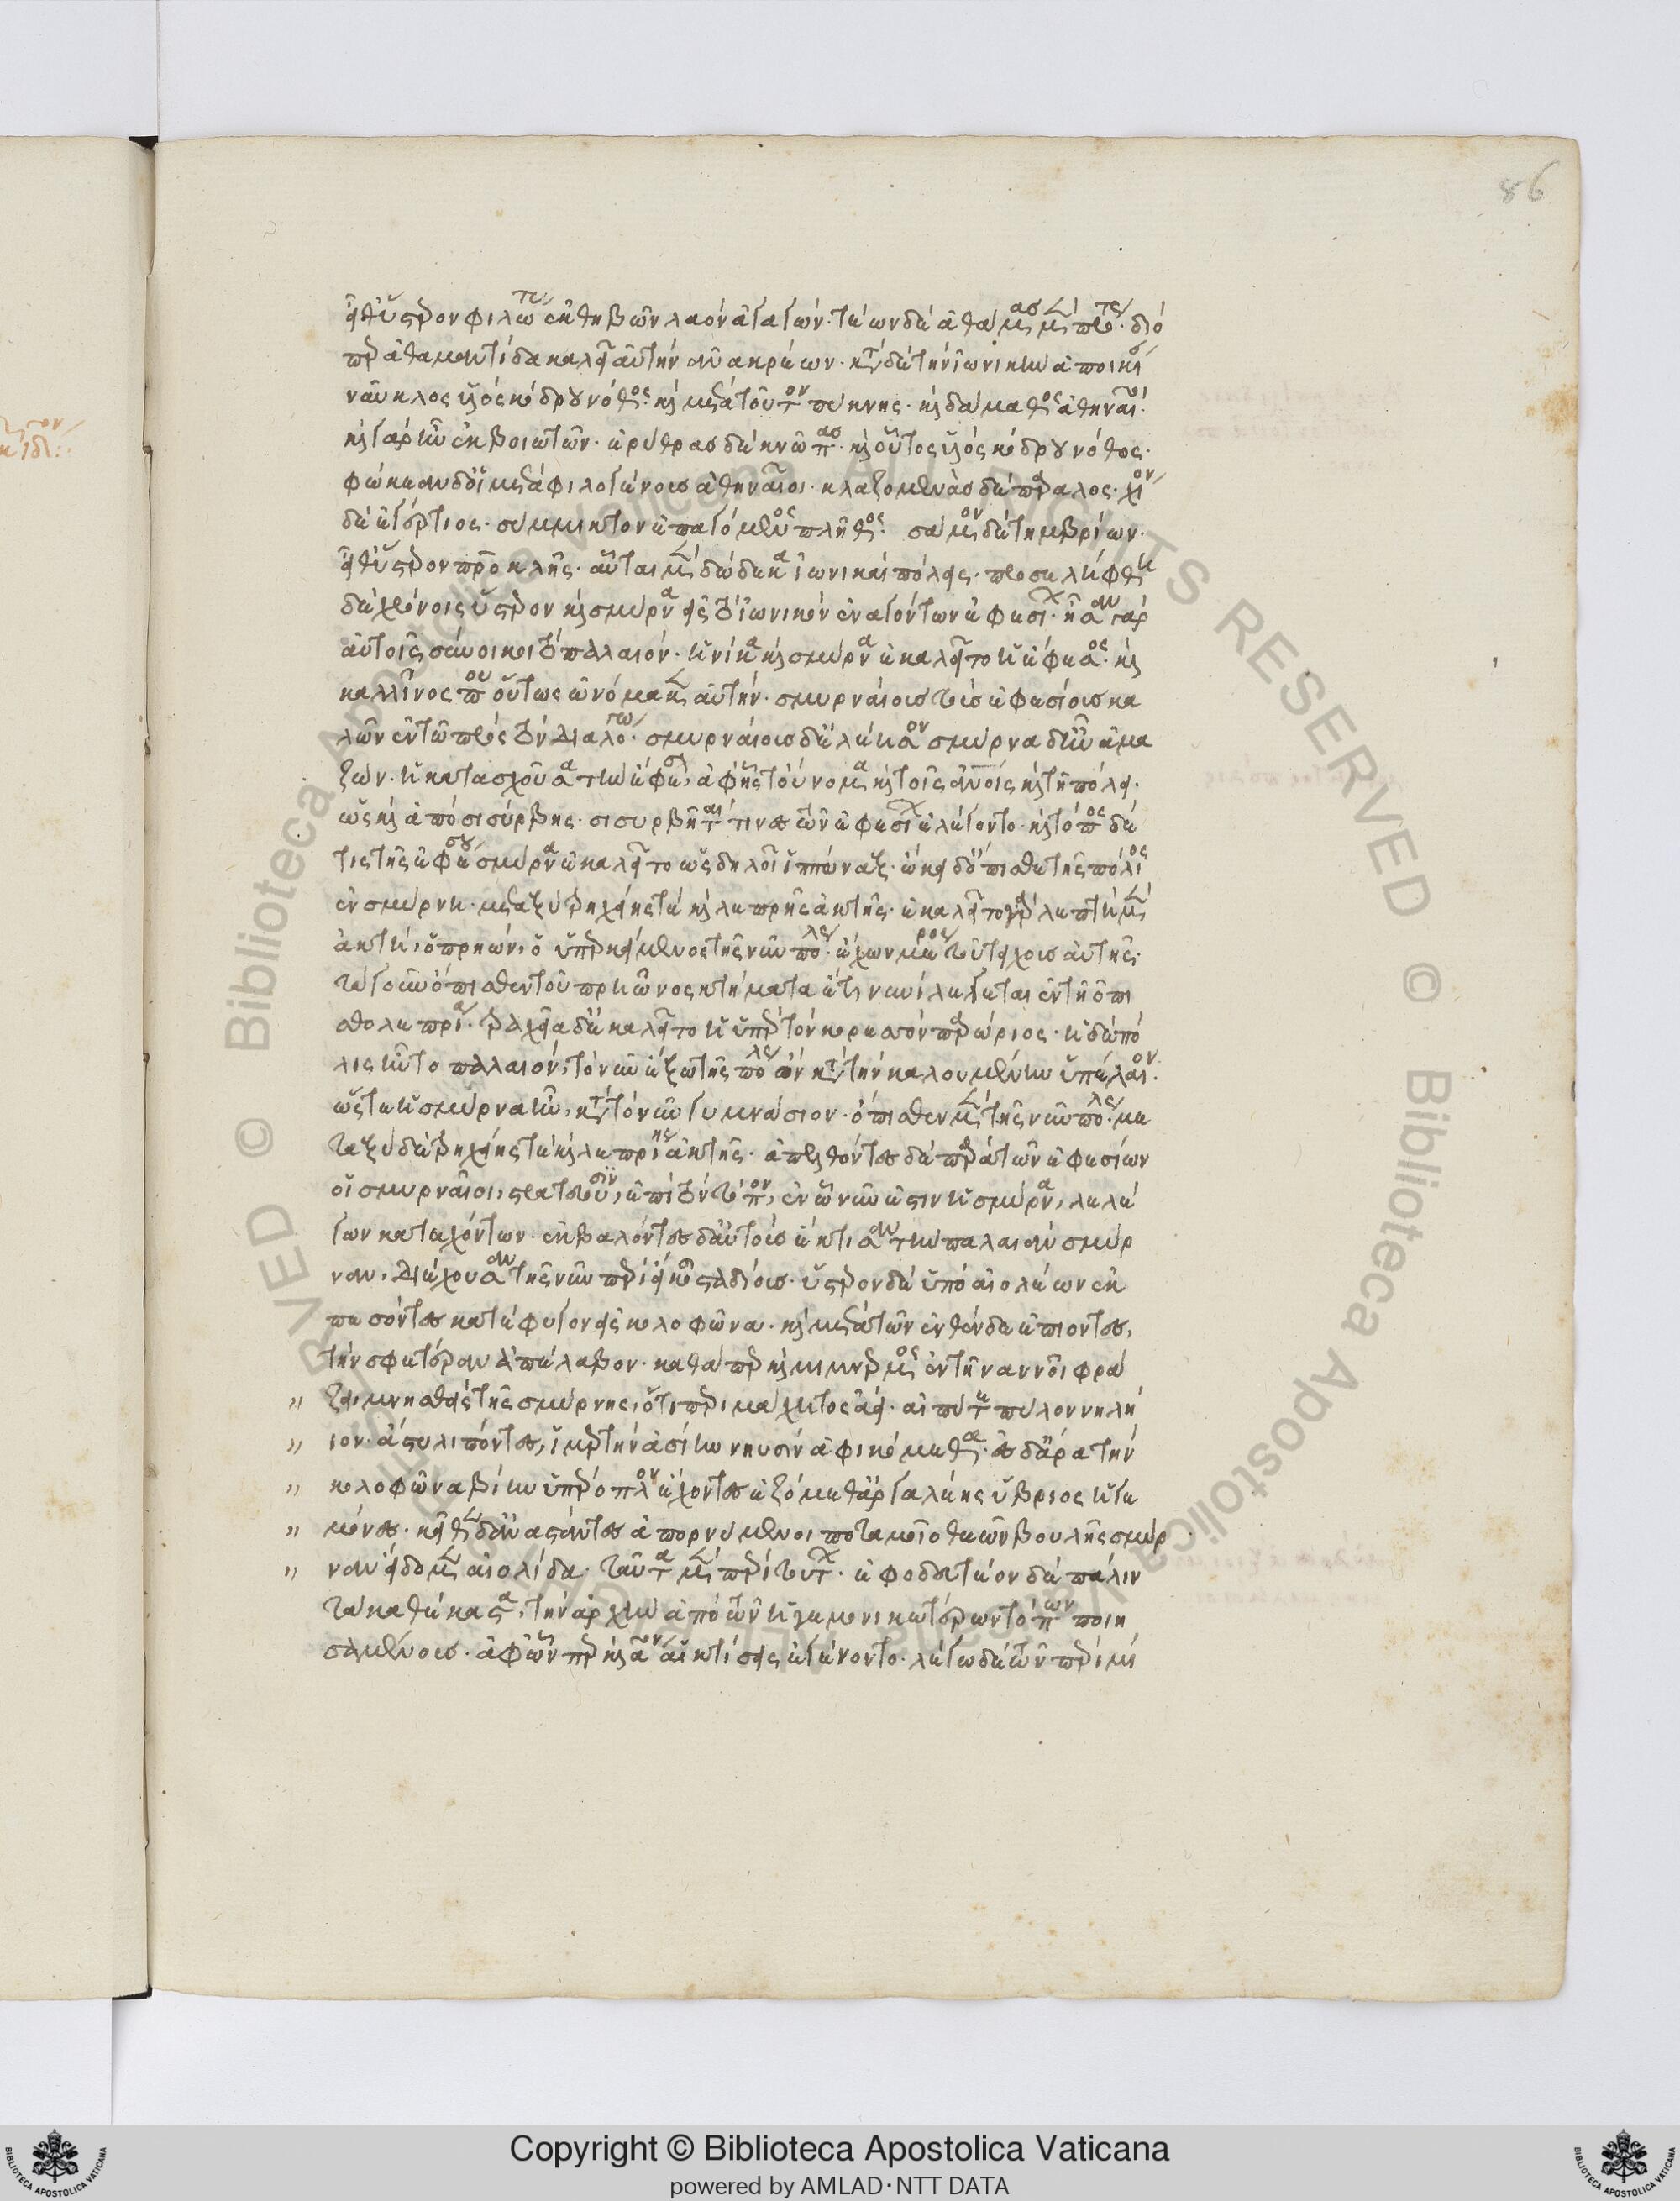 86
εἶθ' ὕστερον φιλώτας ἐκ θηβῶν λαὸν ἀγαγών· τέων δὲ ἀθάμας μὲν πρότερον· διό
περ ἀθαμαντίδα καλεῖ αὐτὴν ἀνακρέων· κατὰ δὲ τὴν ἰωνικὴν ἀποικίαν
ναῦκλος υἱὸς κόδρου νόθος· καὶ μετὰ τοῦτον ποίκνης· καὶ δάμαθος ἀθηναῖοι·
καὶ γέρην ἐκ βοιωτῶν· ἐρυθρὰς δὲ κνῶπος· καὶ οὗτος υἱὸς κόδρου νόθος·
φώκαιαν δ' οἱ μετὰ φιλογένους ἀθηναῖοι· κλαζομενὰς δὲ πάραλος· χίον
δὲ ἐγέρτιος· σύμμικτον ἐπαγόμενος πλῆθος· σάμον δὲ τημβρίων·
εἶθ' ὕστερον προκλῆς· αὗται μὲν δώδεκα ἰωνικαὶ πόλεις· προσελήφθη
δὲ χρόνοις ὕστερον καὶ σμύρνα εἰς τὸ ἰωνικὸν ἐναγόντων ἐφεσίων· ἦσαν γὰρ
αὐτοῖς σύνοικοι τὸ παλαιόν· ἡνίκα καὶ σμύρνα ἐκαλεῖτο ἡ ἔφεσος· καὶ
καλλῖνός που οὕτως ὠνόμακεν αὐτήν· σμυρναίους τοὺς ἐφεσίους κα
λῶν ἐν τῷ πρὸς τὸν δία λόγῳ· σμυρναίους δ' ἐλέησον σμύρνα δ' ἦν ἀμα
ζών· ἡ κατασχοῦσα τὴν ἔφεσον, ἀφ' ἧς τοὔνομα καὶ τοῖς ἀνοις καὶ τῇ πόλει·
ὡς καὶ ἀπὸ σισύρβης· σισυρβῖταί τινες τῶν ἐφεσίων ἐλέγοντο· καὶ τόπος δέ
τις τῆς ἐφέσου σμύρνα ἐκαλεῖτο ὡς δηλοῖ ἱππῶναξ· ᾤκει δ' ὄπισθε τῆς πόλιος
ἐν σμύρνῃ· μεταξὺ τρηχείης τε καὶ λεπρῆς ἀκτῆς· ἐκαλεῖτο γὰρ λεπρὴ μὲν
ἀκτή, ὁ πρηών, ὁ ὑπερκείμενος τῆς νῦν πόλεως· ἔχων μέρος τοῦ τείχους αὐτῆς·
τὰ γοῦν ὄπισθεν τοῦ πρηῶνος κτήματα ἔτι νυνὶ λέγεται ἐν τῇ ὀπι
σθολεπρίᾳ· τραχεῖα δ' ἐκαλεῖτο ἡ ὑπὲρ τὸν κορησσὸν παρώριος· ἡ δὲ πό
λις ἦν τὸ παλαιόν, τὸ νῦν ἔξω τῆς πόλεως ὂν κατὰ τὴν καλουμένην ὑπέλαιον·
ὥστε ἡ σμύρνα ἦν, κατὰ τὸ νῦν γυμνάσιον· ὄπισθεν μὲν τῆς νῦν πόλεως· με
ταξὺ δὲ τρηχείης τε καὶ λεπρίης ἀκτῆς· ἀπελθόντες δὲ παρὰ τῶν ἐφεσίων
οἱ σμυρναῖοι, στρατεύουσιν, ἐπὶ τὸν τόπον, ἐν ᾧ νῦν ἐστιν ἡ σμύρνα, λελέ
γων κατεχόντων· ἐκβαλόντες δ' αὐτοὺς ἔκτισαν τὴν παλαιὰν σμύρ
ναν, διέχουσαν τῆς νῦν περὶ εἴκοσι σταδίους· ὕστερον δὲ ὑπὸ αἰολέων ἐκ
πεσόντες κατέφυγον εἰς κολοφῶνα· καὶ μετὰ τῶν ἐνθένδε ἐπιόντες,
τὴν σφετέραν ἀπέλαβον· καθάπερ καὶ μίμνερμος ἐν τῇ ναννοῖ φρά
ζει μνησθεὶς τῆς σμύρνης, ὅτι περιμάχητος ἀεί· αἰπύ τε πύλον νηλή
ιον· ἄστυ λιπόντες, ἱμερτὴν ἀσίην νηυσὶν ἀφικόμεθα· ἐς δ' ἄρα τὴν
κολοφῶνα βίην ὑπέροπλον ἔχοντες ἑζόμεθ' ἀργαλέης ὕβριος ἡγε
μόνες· κεῖθεν δ' αὖ ἀστύεντες ἀπορνύμενοι ποταμοῖο θεῶν βουλῆς σμύρ
ναν εἵδομεν αἰολίδα· ταῦτα μὲν περὶ τούτων· ἐφοδευτέον δὲ πάλιν
τὰ καθέκαστα, τὴν ἀρχὴν ἀπὸ τῶν ἡγεμονικωτέρων τόπων ποιη
σαμένους· ἐφ' ὧνπερ καὶ πρῶτον αἱ κτίσεις ἐγένοντο· λέγω δὲ τῶν περὶ μί